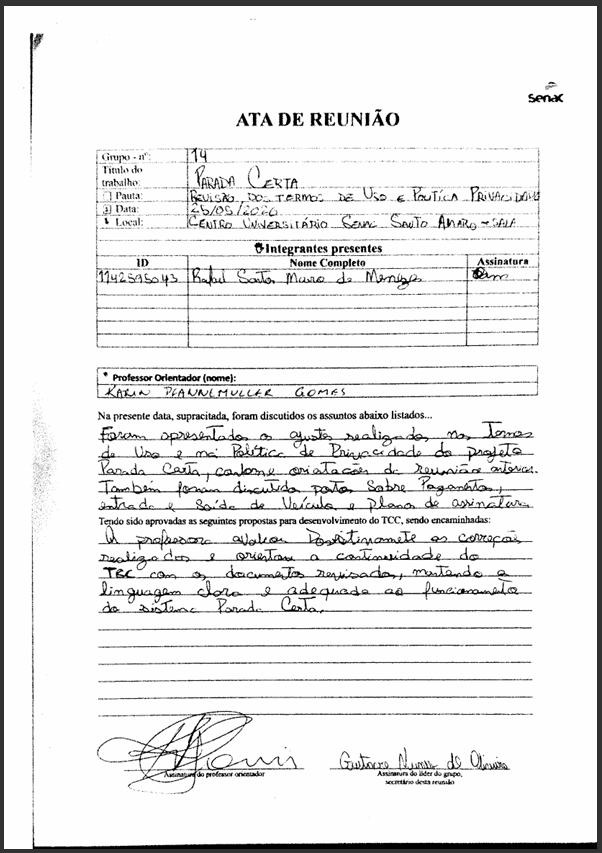 Senac
ATA DE REUNIÃO
Grupo - nº: 14
Título do trabalho: PARADA CERTA
Pauta: REVISÃO DOS TERMOS DE USO E POLÍTICA PRIVACIDADE
Data: 25/05/2026
Local: CENTRO UNIVERSITÁRIO SENAC SANTO AMARO - SALA
Integrantes presentes
ID Nome Completo Assinatura
1142595043 Rafael Santos Mauro de Menezes
Professor Orientador (nome):
KARIN PFANNEMULLER GOMES
Na presente data, supracitada, foram discutidos os assuntos abaixo listados...
Foram apresentados os ajustes realizados nos Termos
de Uso e na Política de Privacidade do projeto
Parada Certa, conforme orientações da reunião anterior.
Também foram discutidos pontos sobre Pagamentos,
entrada e Saída de Veículo e plano de assinatura
Tendo sido aprovadas as seguintes propostas para desenvolvimento do TCC, sendo encaminhadas:
A professora avaliou as correções
realizadas e orientou a continuidade do
TCC com os documentos revisados, mantendo a
linguagem clara e adequada ao funcionamento
do sistema Parada Certa.
Assinatura do professor orientador
Gustavo Nunes de Oliveira
Assinatura do líder do grupo,
secretário desta reunião